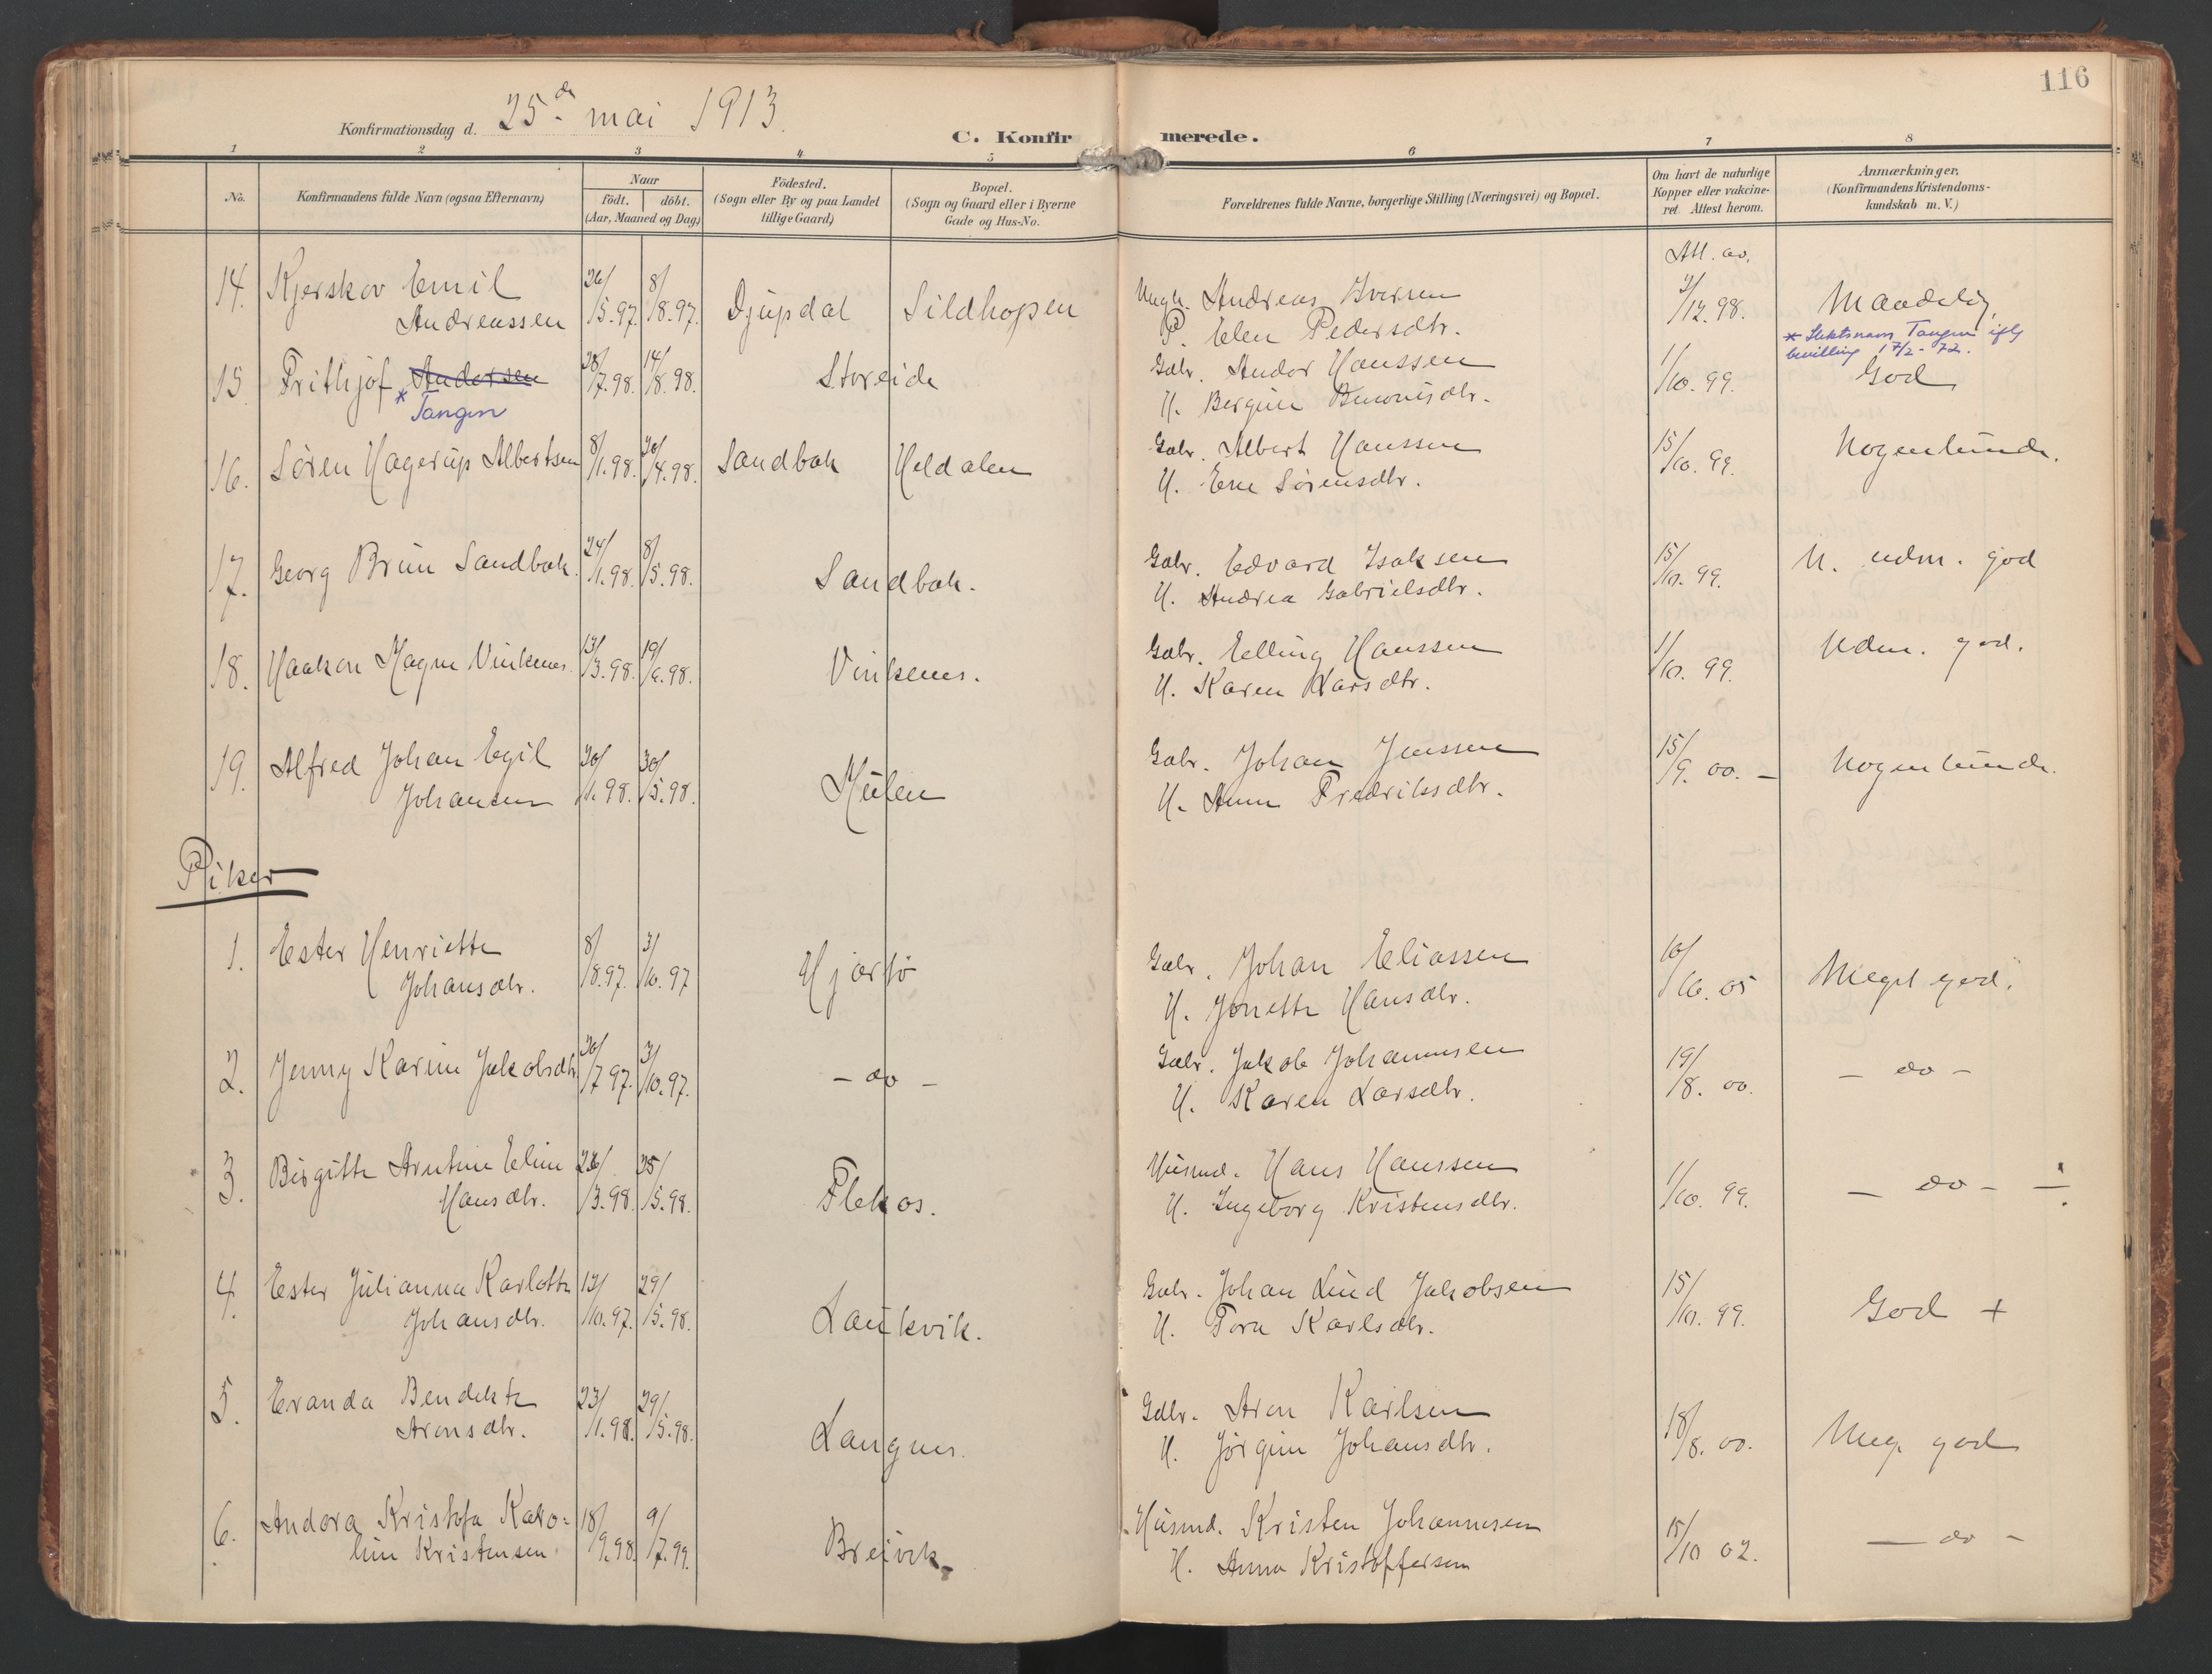 116
Konfirmationsdag d. 25de mai 1913.
C. Konfirmerede.
1 2 3 4 5 6 7 8
No.
Konfirmandens fulde Navn (ogsaa Efternavn)
Naar
födt. döbt.
(Aar, Maaned og Dag)
Födested.
(Sogn eller By og paa Landet
tillige Gaard)
Bopæl.
(Sogn og Gaard eller i Byerne
Gade og Hus-No.
Forældrenes fulde Navne, borgerlige Stilling (Næringsvei) og Bopæl.
Om havt de naturlige
Kopper eller vakcine-
ret. Attest herom.
Anmærkninger.
(Konfirmandens Kristendoms-
kundskab m. V.)
Att. av.
14. Kjerskov Emil 26/5.97. 8/8.97. Djupdal Sildhopen Ungk. Andreas Iversen 2/12.98. Maadelig
Andreassen P. Elen Pedersdtr.
* Slektsnavn Tangen iflg
bevilling 17/2-72.
15 Frithjof Andersen 28/7.98. 14/8.98. Storeide Gdbr. Andor Hanssen 1/10.99. God
* Tangen H. Bergine Benonisdtr.
16. Sören Hagerup Albertsen 8/1.98. 30/4.98. Sandbak Heldalen Gdbr. Albert Hanssen 15/10.99. Nogenlunde.
H. Ene Sörensdtr.
17. Georg Brun Sandbak. 24/1.98. 8/5.98. Sandbak. Gdbr. Edvard Isaksen 15/10.99. M. udm. god
H. Andrea Gabrielsdtr.
18. Haakon Magne Vinkenes. 13/3.98. 19/6.98. Vinkenes. Gdbr. Elling Hanssen 1/10.99. Udm. god.
H. Karen Larsdtr.
19. Alfred Johan Egil 20/1.98. 30/5.98. Mulen Gdbr. Johan Jenssen 15/9.00. – Nogenlunde.
Johansen H. Anne Fredriksdtr.
Piker
1. Ester Henriette 8/8.97. 3/10.97 Hjartö Gdbr. Johan Eliassen 10/10.05 Meget god.
Johansdtr. H. Jonette Hansdtr.
2. Jenny Karine Jakobsdtr. 30/7 97. 3/10.97. – do – Gdbr. Jakob Johannesen 19/8.00. – do –
H. Karen Larsdtr.
3. Birgitte Arntine Eline 26/3.98. 25/5.98. Flekos. Husmd. Hans Hanssen 1/10.99. – do – ÷
Hansdtr. H. Ingeborg Kristensdtr.
4. Ester Julianna Karlotte 12/10.97. 29/5.98. Laukvik. Gdbr. Johan Lind Jakobsen 15/10.99. God +
Johansdtr. H. Tora Karlsdtr.
5. Evanda Bendikte 23/1.98. 29/5.98. Langnes. Gdbr. Aron Karlsen 18/8.00. Meg. god
Aronsdtr. H. Jörgine Johansdtr.
6. Andora Kristofa Karo= 18/9.98. 9/7.99. Breivik Husmd. Kristen Johannesen 15/10 02. – do –
line Kristensen. H. Anna Kristoffersen